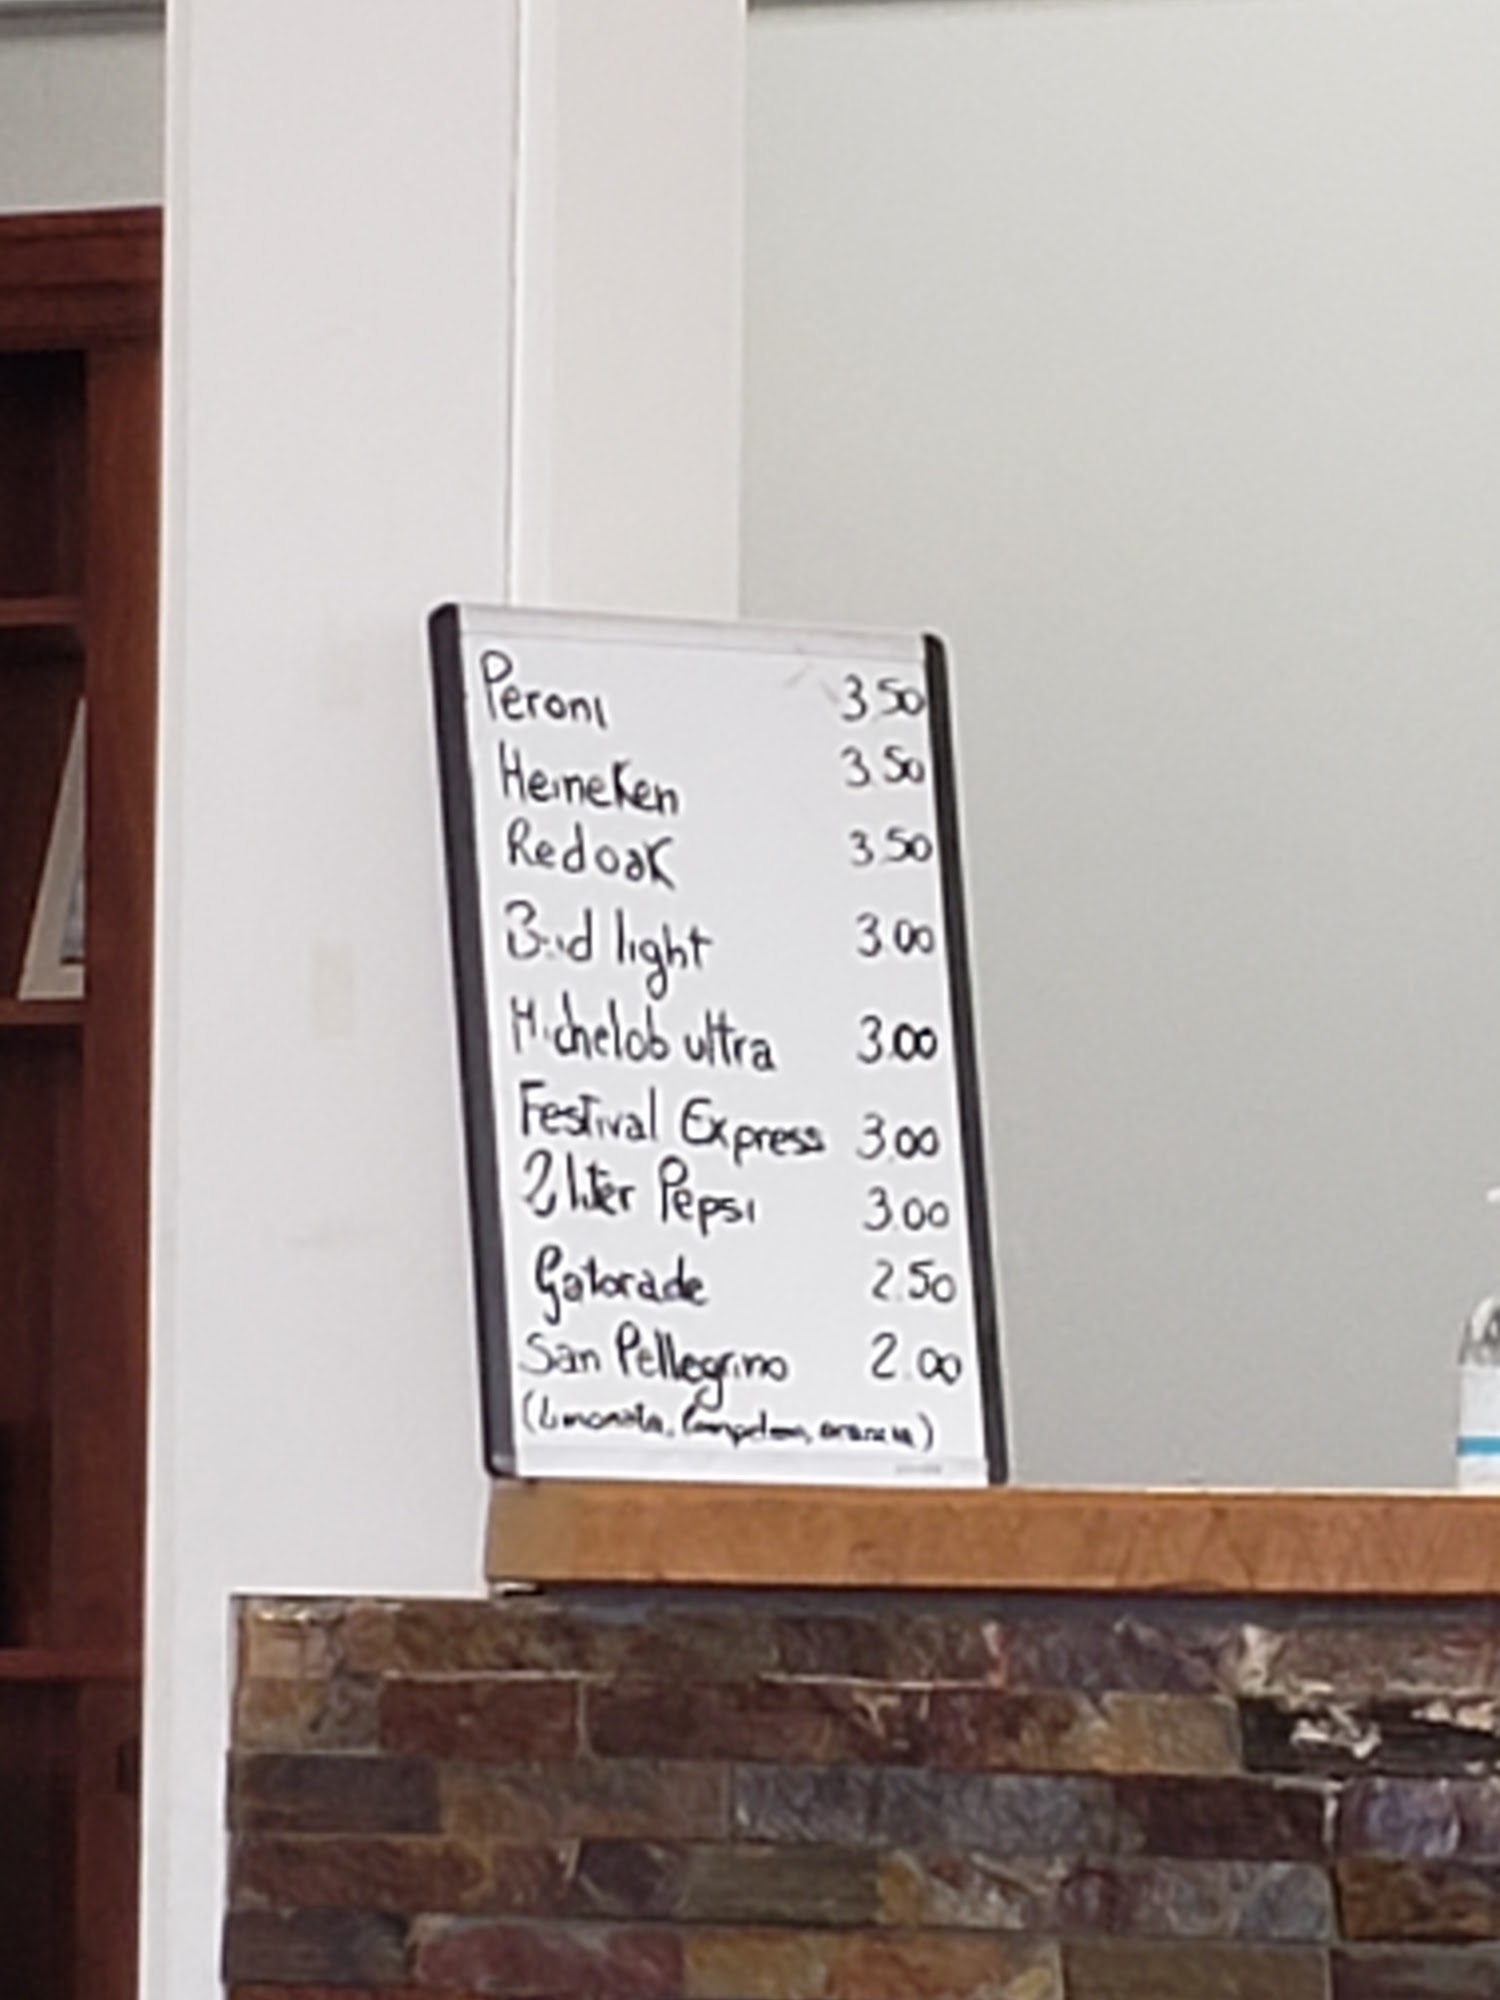 Peroni 3.50
Heineken 3.50
Redoak 3.50
Bud light 3.00
Michelob ultra 3.00
Festival Express 3.00
2 liter Pepsi 3.00
Gatorade 2.50
San Pellegrino 2.00
(Limonata, arancia)